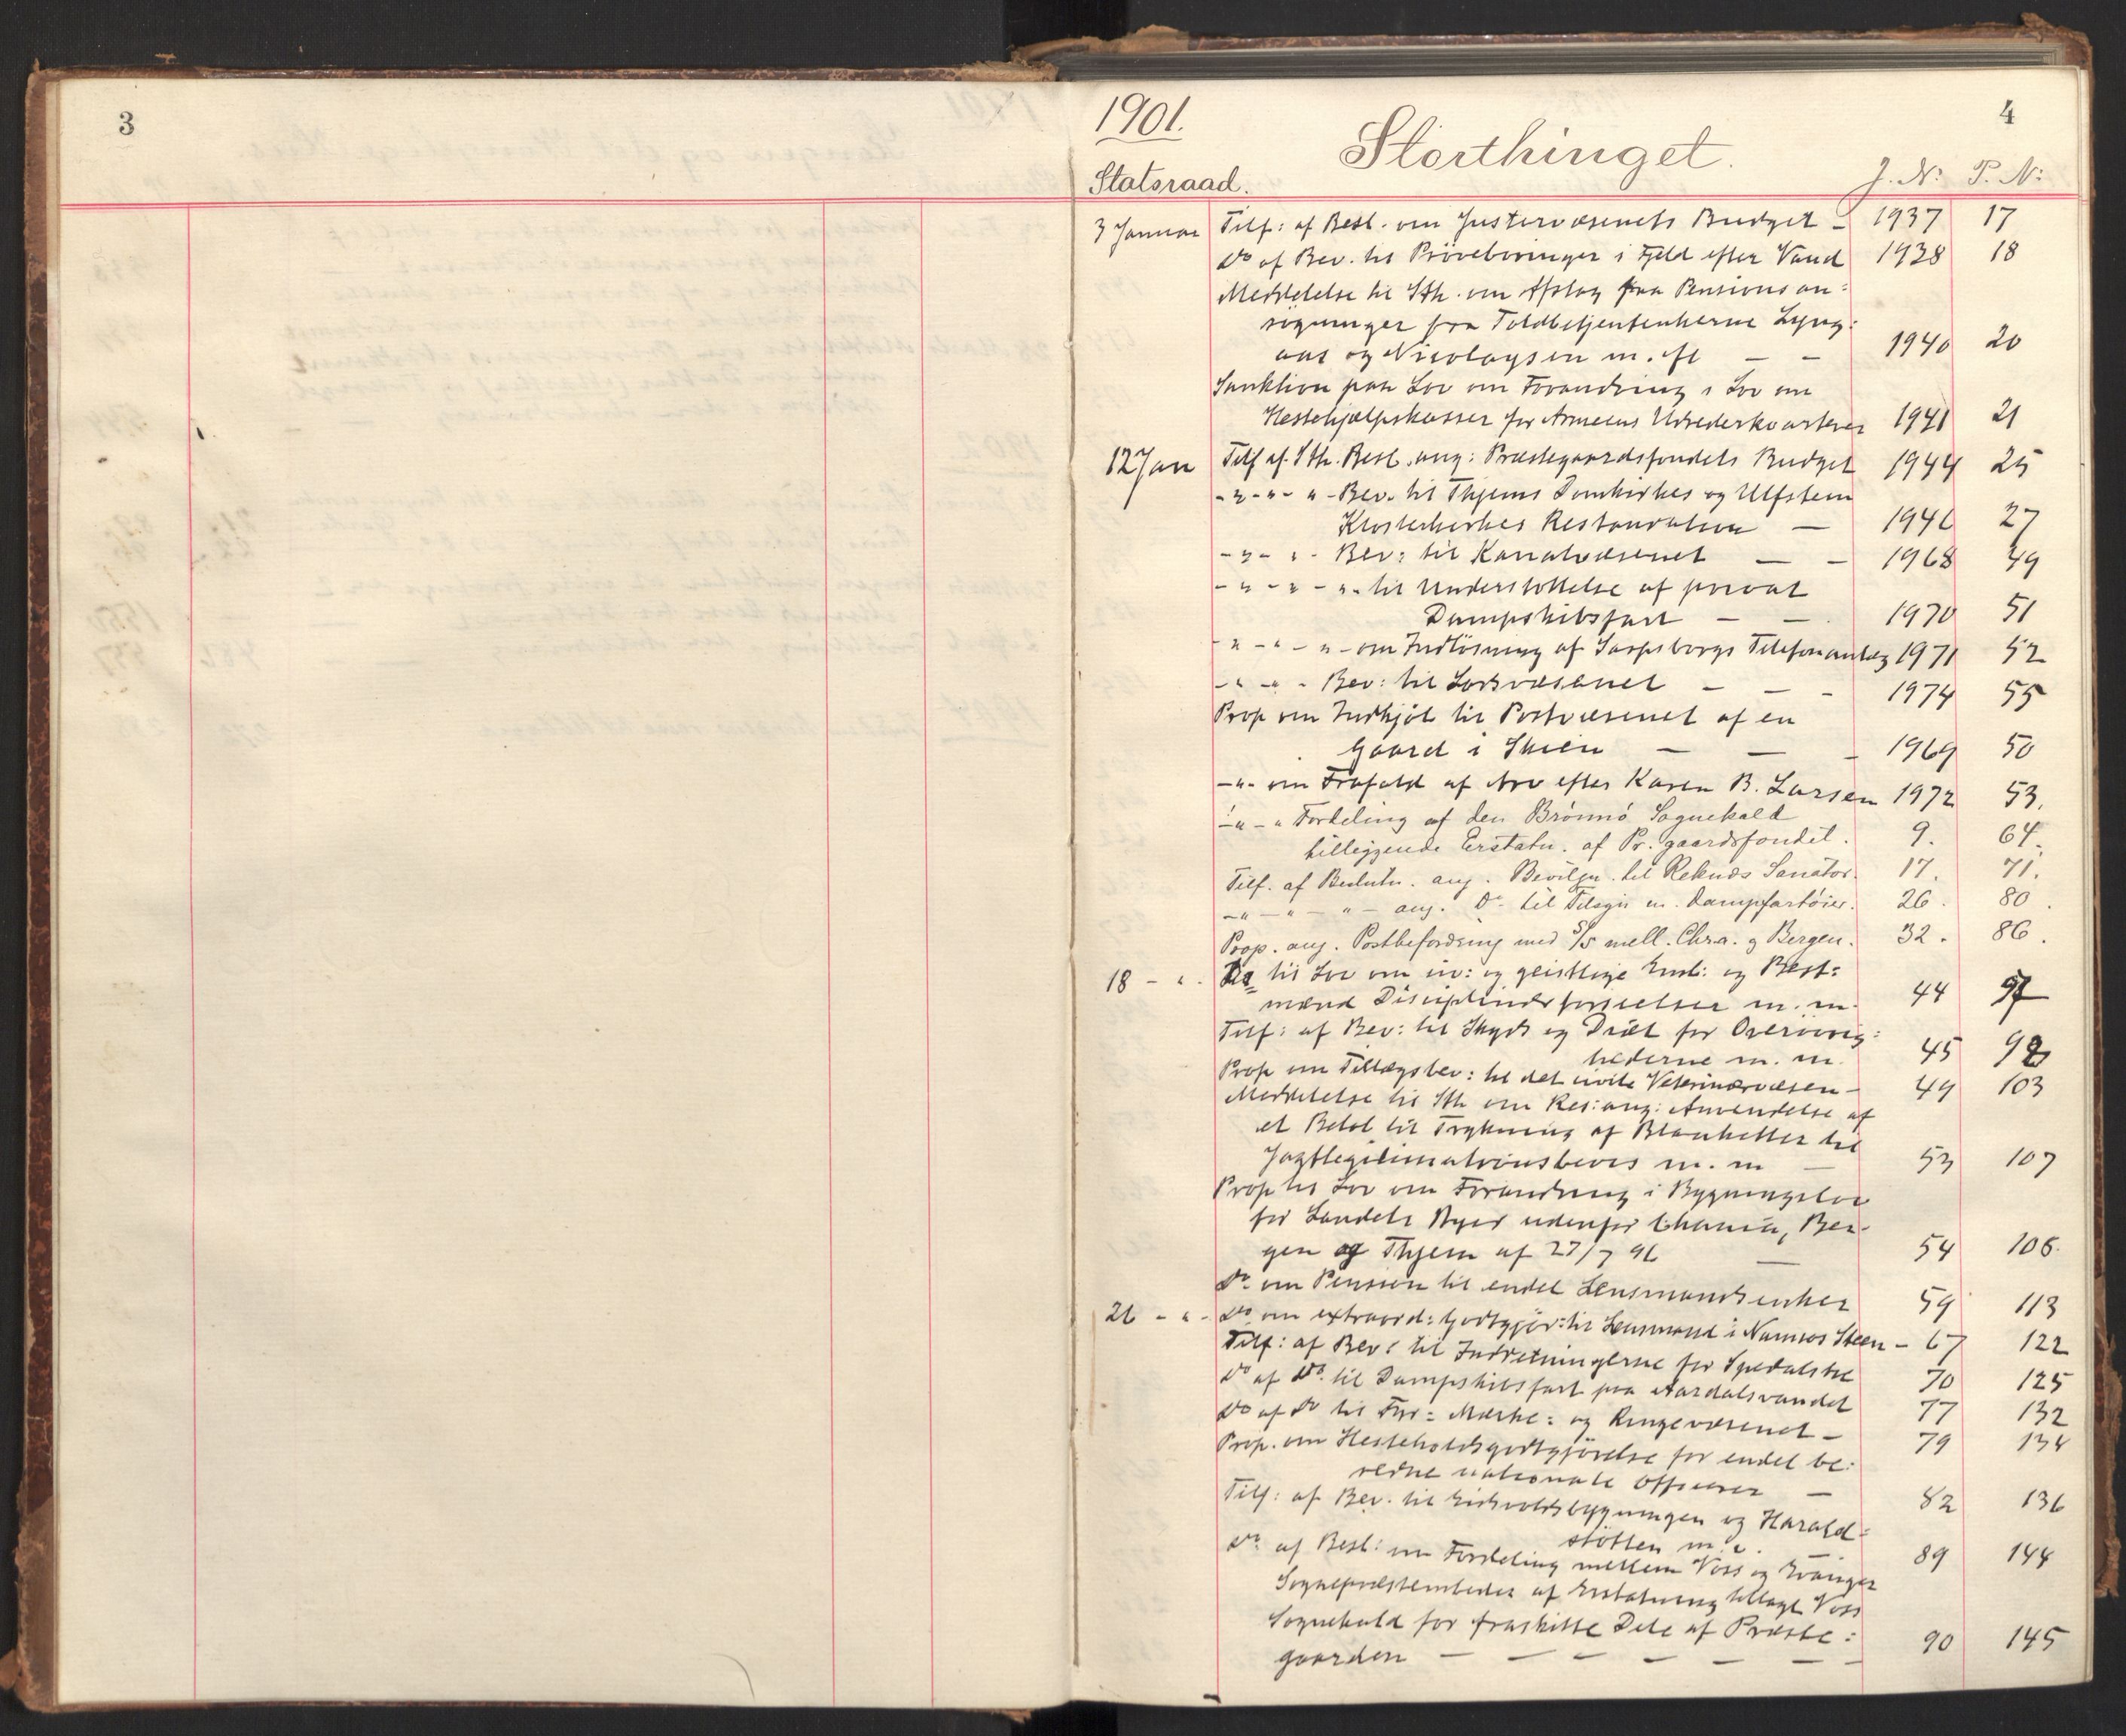 3
4
1901.
Storthinget.
Statsraad.
J. N: P. N:
3 Januar Tilf: af Besl. om Justervæsenets Budget - 1937 17
Do af Bev. til Prøveboringer i Fjeld efter Vand 1938 18
Meddelelse til Sth. om Afslag paa Pensionsan:
søgninger fra Toldbetjentenkerne Lyng:
aas og Nicolaysen m. fl — — 1940 20
Sanktion paa Lov om Forandring i Lov om
Hestehjælpskasser for Armeens Udrederkvarterer 1941 21
12 Jan Tilf af Sth. Besl. ang: Præstegaardsfondets Budget 1944 25
- " - " - " - Bev. til Thjems Domkirkes og Utstein
Klosterkirkes Restauration — 1946 27
- " - " - Bev: til Kanalvæsenet — — 1968 49
- " - " - " - til Understøttelse af privat
Dampskibsfart — — 1970 51
- " - " - " - om Indløsning af Sarpsborgs Telefonanlæg 1971 52
- " - " - Bev: til Lodsvæsenet — — - 1974 55
Prop om Indkjøb til Postvæsenet af en
Gaard i Skien — — - 1969 50
- " - om Frafald af Arv efter Karen B. Larsen 1972 53.
- " - " Fordeling af den Brønnø Sognekald
tilleggende Erstatn. af Pr. gaardsfondet. 9. 64.
Tilf. af Beslutn. ang. Bevilgn. til Reknæs Sanator. 17. 71.
- " - " - " - ang. Do til Tilsyn m. Dampfartøier. 26. 80.
Prop. ang. Postbefordring med S/S mell. Chra. og Bergen. 32. 86.
18 - " - Do til Lov om civ: og geistlige Emb: og Best:
mænd Disciplinærforseelser m. m. 44 97
Tilf: af Bev: til Skyds og Diæt for Overøvrig:
hederne m. m. 45 98
Prop om Tillægsbev: til det civile Veterinærvæsen - 49 103
Meddelelse til Sth om Res: ang: Anvendelse af
et Beløb til Trykning af Blanketter til
Jagtlegitimationsbevis m. m — 53 107
Prop til Lov om Forandring i Bygningslov
for Landets Byer udenfor Chania, Ber-
gen og Thjem af 27/7 96 — 54 108.
Do om Pension til endel Lensmandsenker 59 113
26 - " - Do om extraord: Godtgjør: til Lensmand i Namsos Steen - 67 122
Tilf: af Bev: til Indretningerne for Spedalske 70 125
Do af Do til Dampskibsfart paa Aardalsvandet 77 132
Do af Do til Fyr: Mærke: og Ringevæsenet - 79 134
Prop. om Hesteholdsgodtgjørelse for endel be:
redne nationale Officerer — 82 136
Tilf: af Bev. til Eidsvoldsbygningen og Harald:
støtten m. v. 89 144
Do af Besl: om Fordeling mellem Voss og Evanger
Sognepræstembeder af Erstatning tillagt Voss
Sognekald for fraskilte Dele af Præste:
gaarden — — — — — — — 90 145